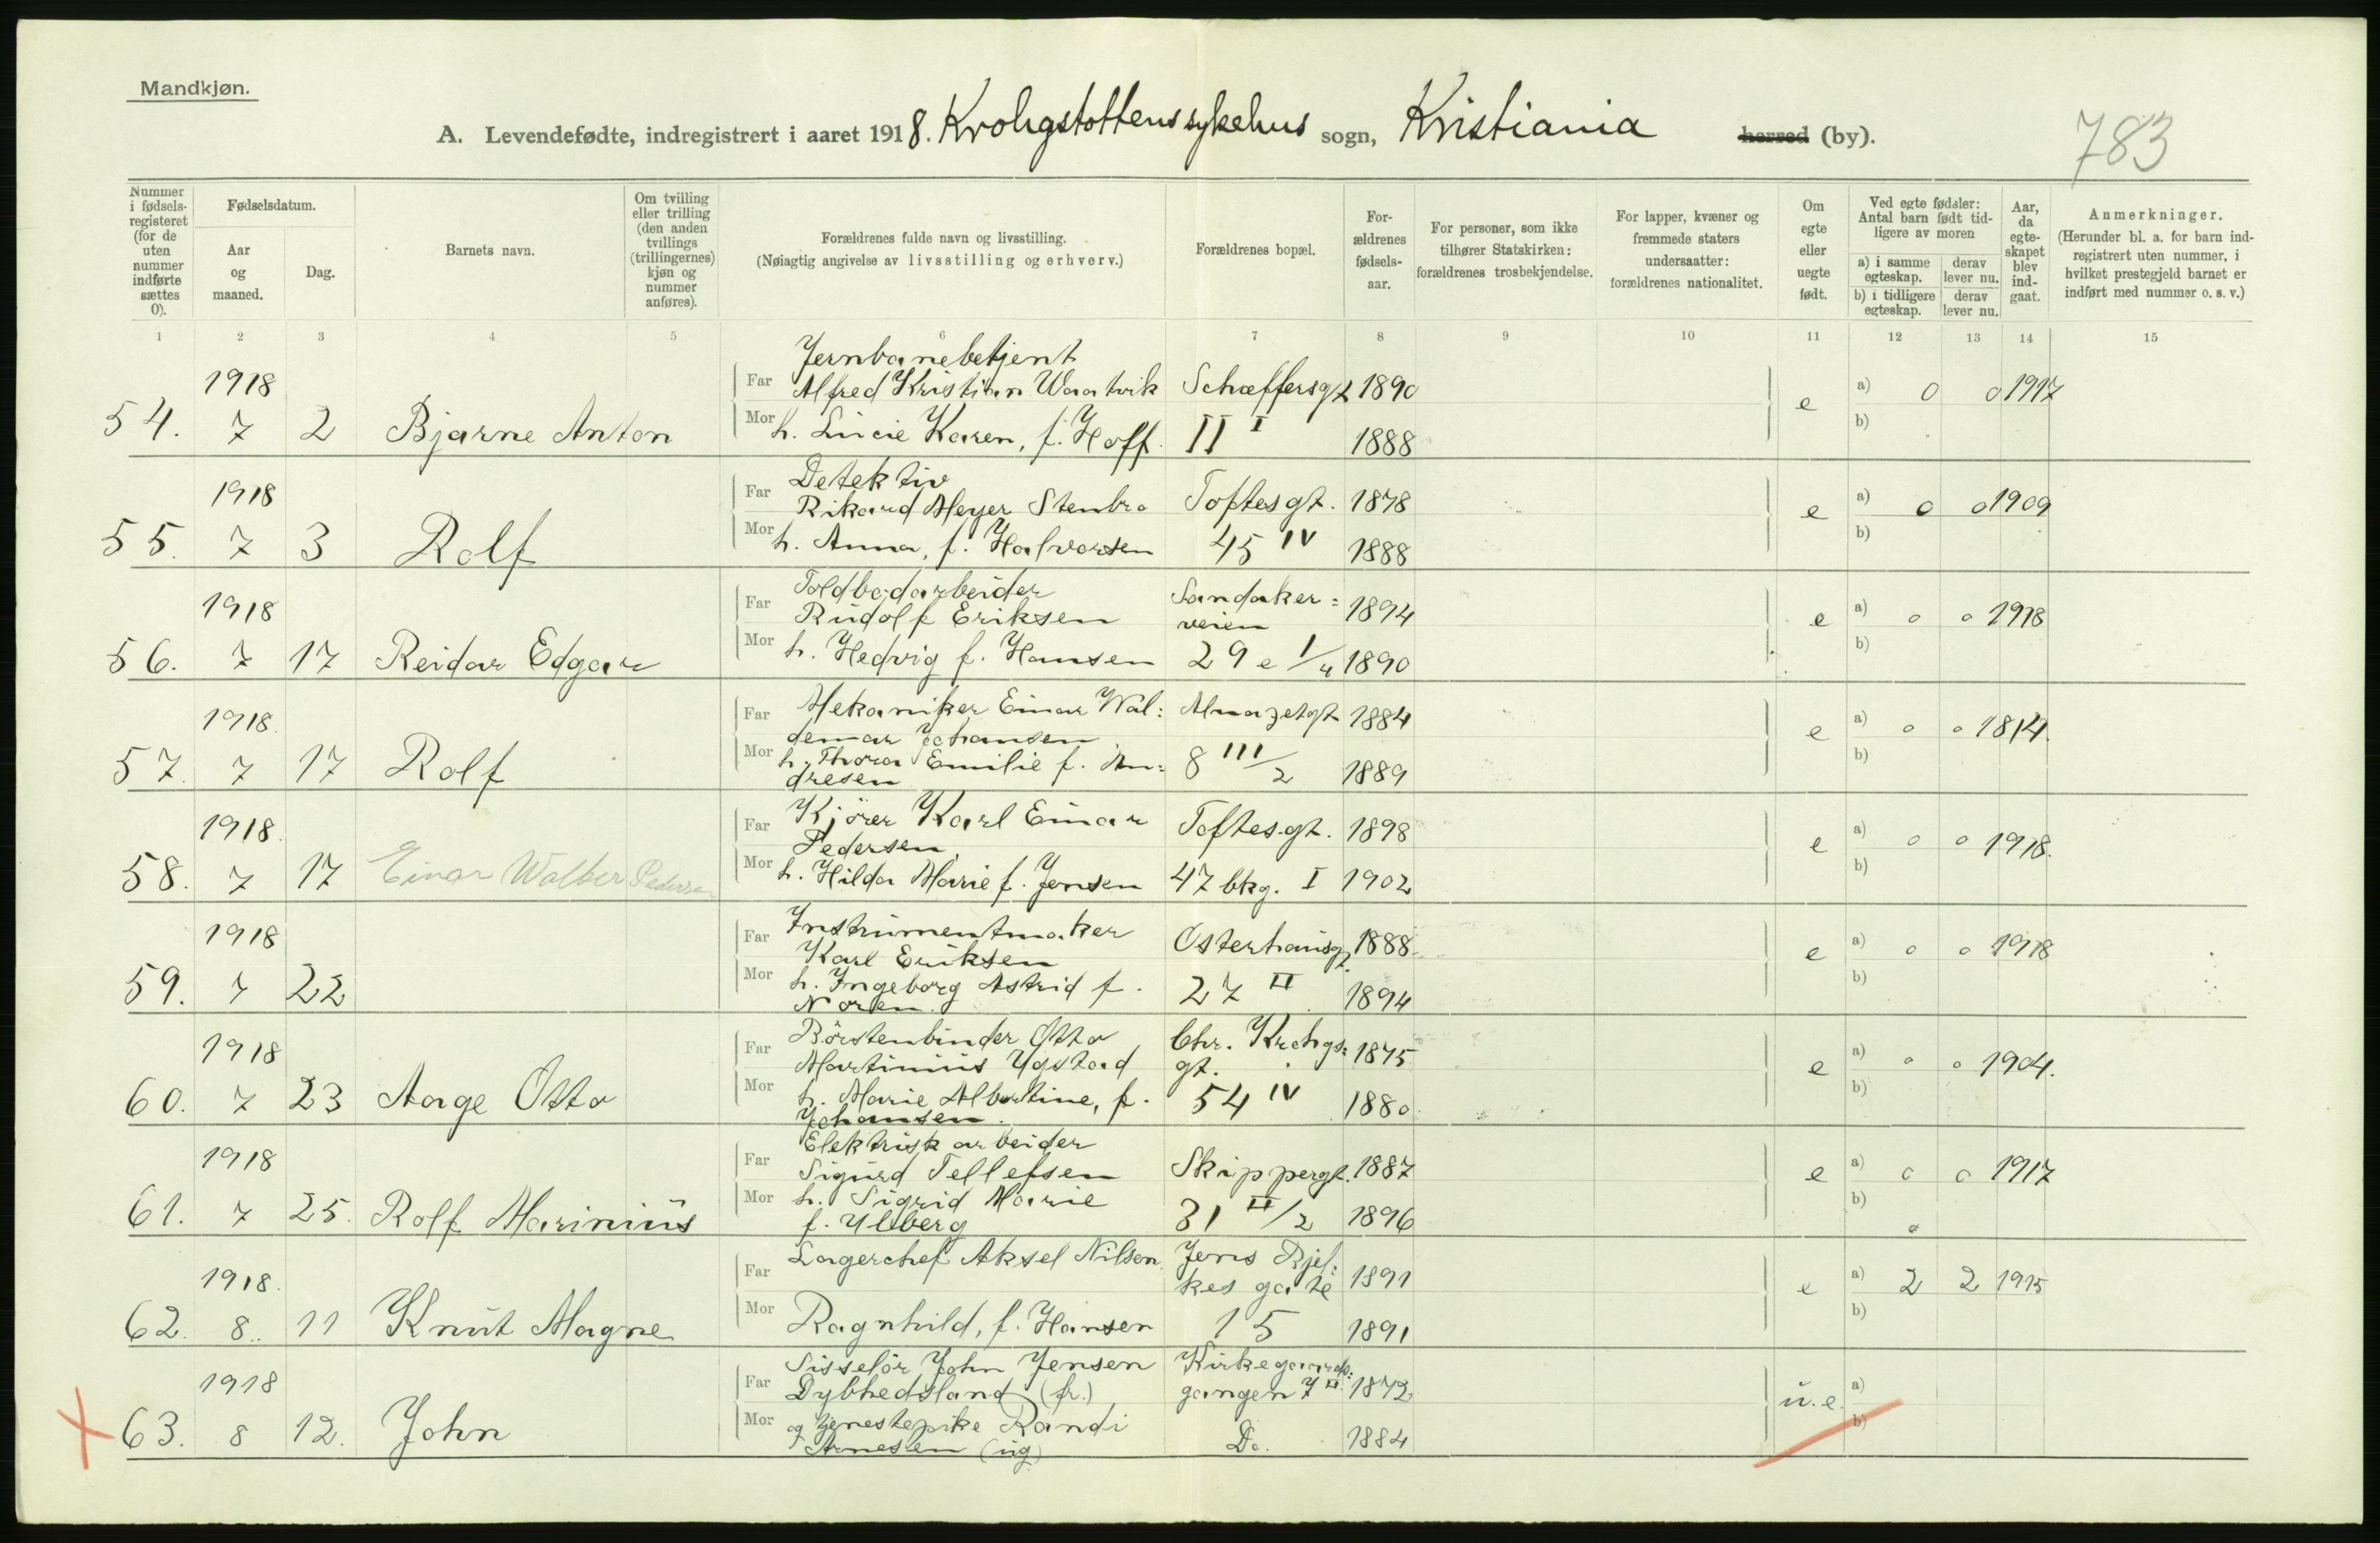 Mandkjøn.
A. Levendefødte, indregistrert i aaret 1918. Krohgstøttens sykehus sogn, Kristiania herred (by).
783
Nummer i fødselsregisteret (for de uten nummer indførte sættes 0).
Fødselsdatum.
Aar og maaned.
Dag.
Barnets navn.
Om tvilling eller trilling (den anden tvillings (trillingernes) kjøn og nummer anføres).
Forældrenes fulde navn og livsstilling.
(Nøiagtig angivelse av livsstilling og erhverv.)
Forældrenes bopæl.
For-ældrenes fødsels-aar.
For personer, som ikke tilhører Statskirken: forældrenes trosbekjendelse.
For lapper, kvæner og fremmede staters undersaatter: forældrenes nationalitet.
Om egte eller uegte født.
Ved egte fødsler: Antal barn født tid-ligere av moren
a) i samme egteskap. derav lever nu.
b) i tidligere egteskap. derav lever nu.
Aar, da egte-skapet blev ind-gaat.
Anmerkninger.
(Herunder bl. a. for barn ind-registrert uten nummer, i hvilket prestegjeld barnet er indført med nummer o. s. v.)
1 2 3 4 5 6 7 8 9 10 11 12 13 14 15
Jernbanebetjent
1918 Far Alfred Kristian Waatvik Schæffersgt 1890 e a) 0 0 1917
54. 7 2 Bjarne Anton Mor h. Lucie Karen, f. Hoff. II I 1888 b)
Detektiv
1918 Far Rikard Meyer Stenbro Toftesgt. 1878 e a) 0 0 1909
55. 7 3 Rolf Mor h. Anna, f. Halvorsen 45 IV 1888 b)
Toldbodarbeider Sandaker=
1918 Far Rudolf Eriksen veien 1894 e a) 0 0 1918
56. 7 17 Reidar Edgar Mor h. Hedvig f. Hansen 29 e 1/4 1890 b)
1918 Far Mekaniker Einar Wal: Almazetgt 1884 e a) 0 0 1814.
demar Johansen
57. 7 17 Rolf Mor h. Thora Emilie f. An= 8 III/2 1889 b)
dresen
1918. Far Kjører Karl Einar Toftes.gt. 1898 e a) 0 0 1918.
Pedersen,
58. 7 17 Einar Walber Pedersen Mor h. Hilda Marie f. Jensen 47 bkg. I 1902 b)
1918 Far Instrumentmaker Osterhausgt. 1888 e a) 0 0 1918
Karl Eriksen
59. 7 22 Mor h. Ingeborg Astrid f. 27 II 1894 b)
Noren.
Børstenbinder Otto Chr. Krohgs=
1918 Far Martinius Ygstad gt. 1875 e a) 0 0 1904.
60. 7 23 Aage Otto Mor h. Marie Albertine, f. 54 IV 1880 b)
Johansen.
Elektrisk arbeider
1918 Far Sigurd Tellefsen Skippergt. 1887 e a) 0 0 1917
61. 7 25. Rolf Marinius Mor h. Sigrid Marie 31 II/2 1896 b)
f. Ulberg
Lagerchef Aksel Nilsen. Jens Bjel=
1918. Far kes gate 1891 e a) 2 2 1915
62. 8. 11 Knut Magne Mor Ragnhild, f. Hansen 15 1891 b)
Sisselør John Jensen Kirkegaards=
1918 Far Dybhedsland (fr.) gangen 7 II. 1872 u.e. a)
63. 8 12. John Mor og tjenestepike Randi Do. 1884 b)
Arnesen (ug)